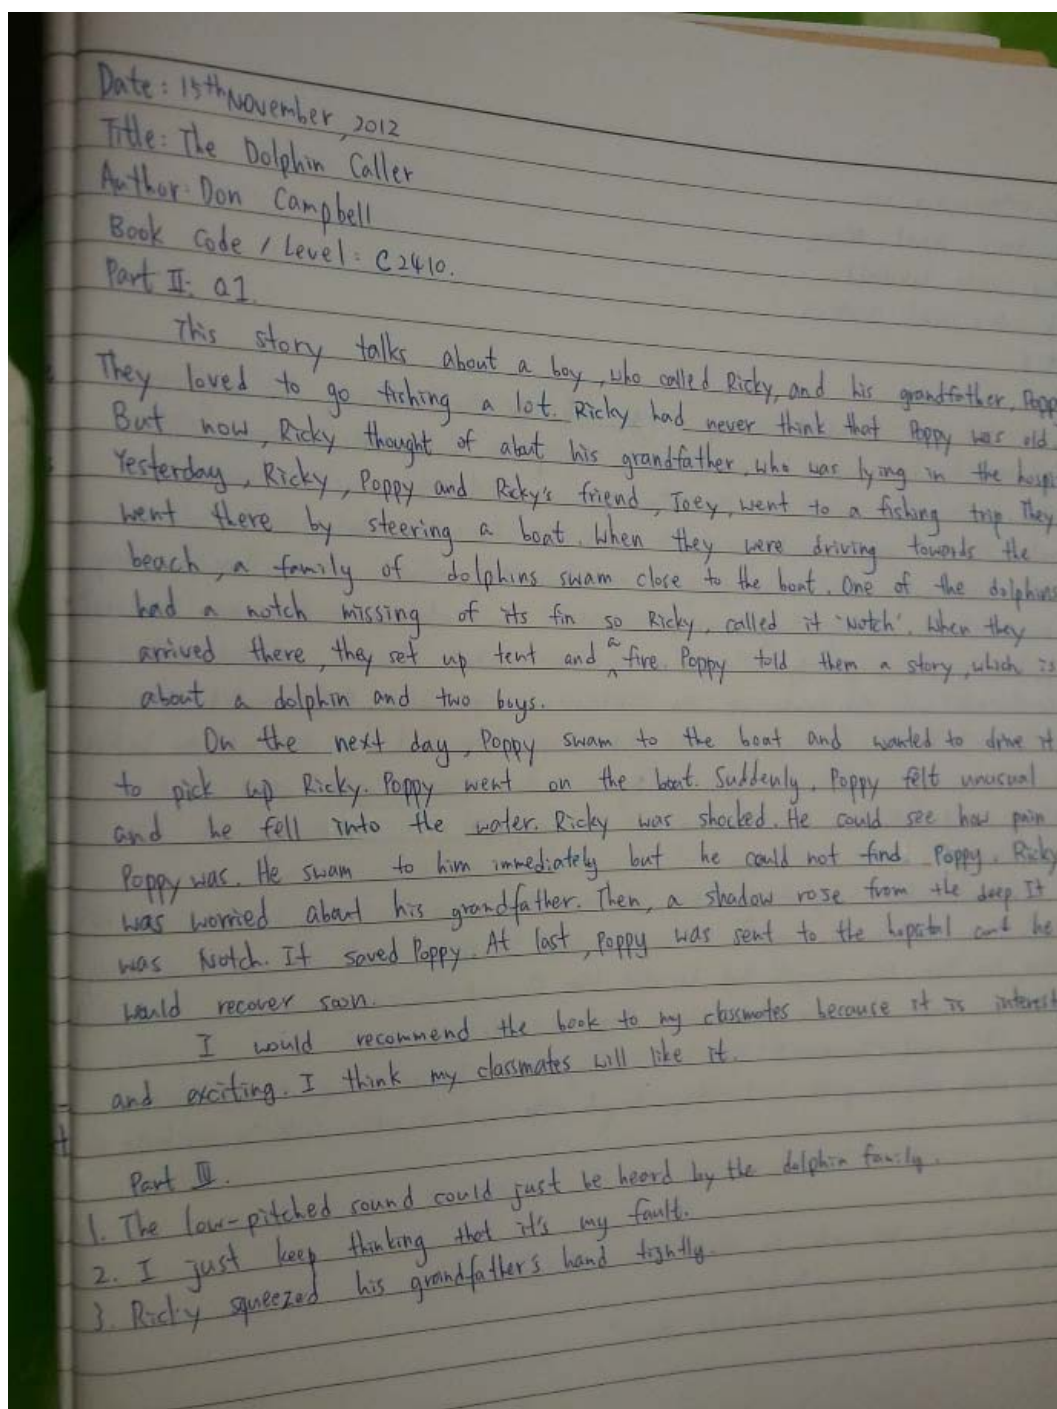 Date: 15th November, 2012
Title: The Dolphin Caller
Author: Don Campbell
Book Code / Level: C2410.
Part II: Q1.
This story talks about a boy, who called Ricky, and his grandfather, Poppy
They loved to go fishing a lot. Ricky had never think that Poppy was old.
But now, Ricky thought of about his grandfather, who was lying in the
Yesterday, Ricky, Poppy and Ricky's friend, Joey, went to a fishing trip. They
went there by steering a boat. When they were driving towards the
beach, a family of dolphins swam close to the boat. One of the dolphins
had a notch missing of its fin so Ricky, called it 'Notch'. When they
arrived there, they set up tent and a fire. Poppy told them a story, which is
about a dolphin and two boys.
On the next day, Poppy swam to the boat and wanted to drive it
to pick up Ricky. Poppy went on the boat. Suddenly, Poppy felt unusual
and he fell into the water. Ricky was shocked. He could see how pain
Poppy was. He swam to him immediately but he could not find Poppy. Ricky
was worried about his grandfather. Then, a shadow rose from the deep It
was Notch. It saved Poppy. At last, Poppy was sent to the hopstal and he
would recover soon.
I would recommend the book to my classmates because it is interest
and exciting. I think my classmates will like it.
Part III.
1. The low-pitched sound could just be heard by the dolphin family.
2. I just keep thinking that it's my fault.
3. Ricky squeezed his grandfather's hand tightly.